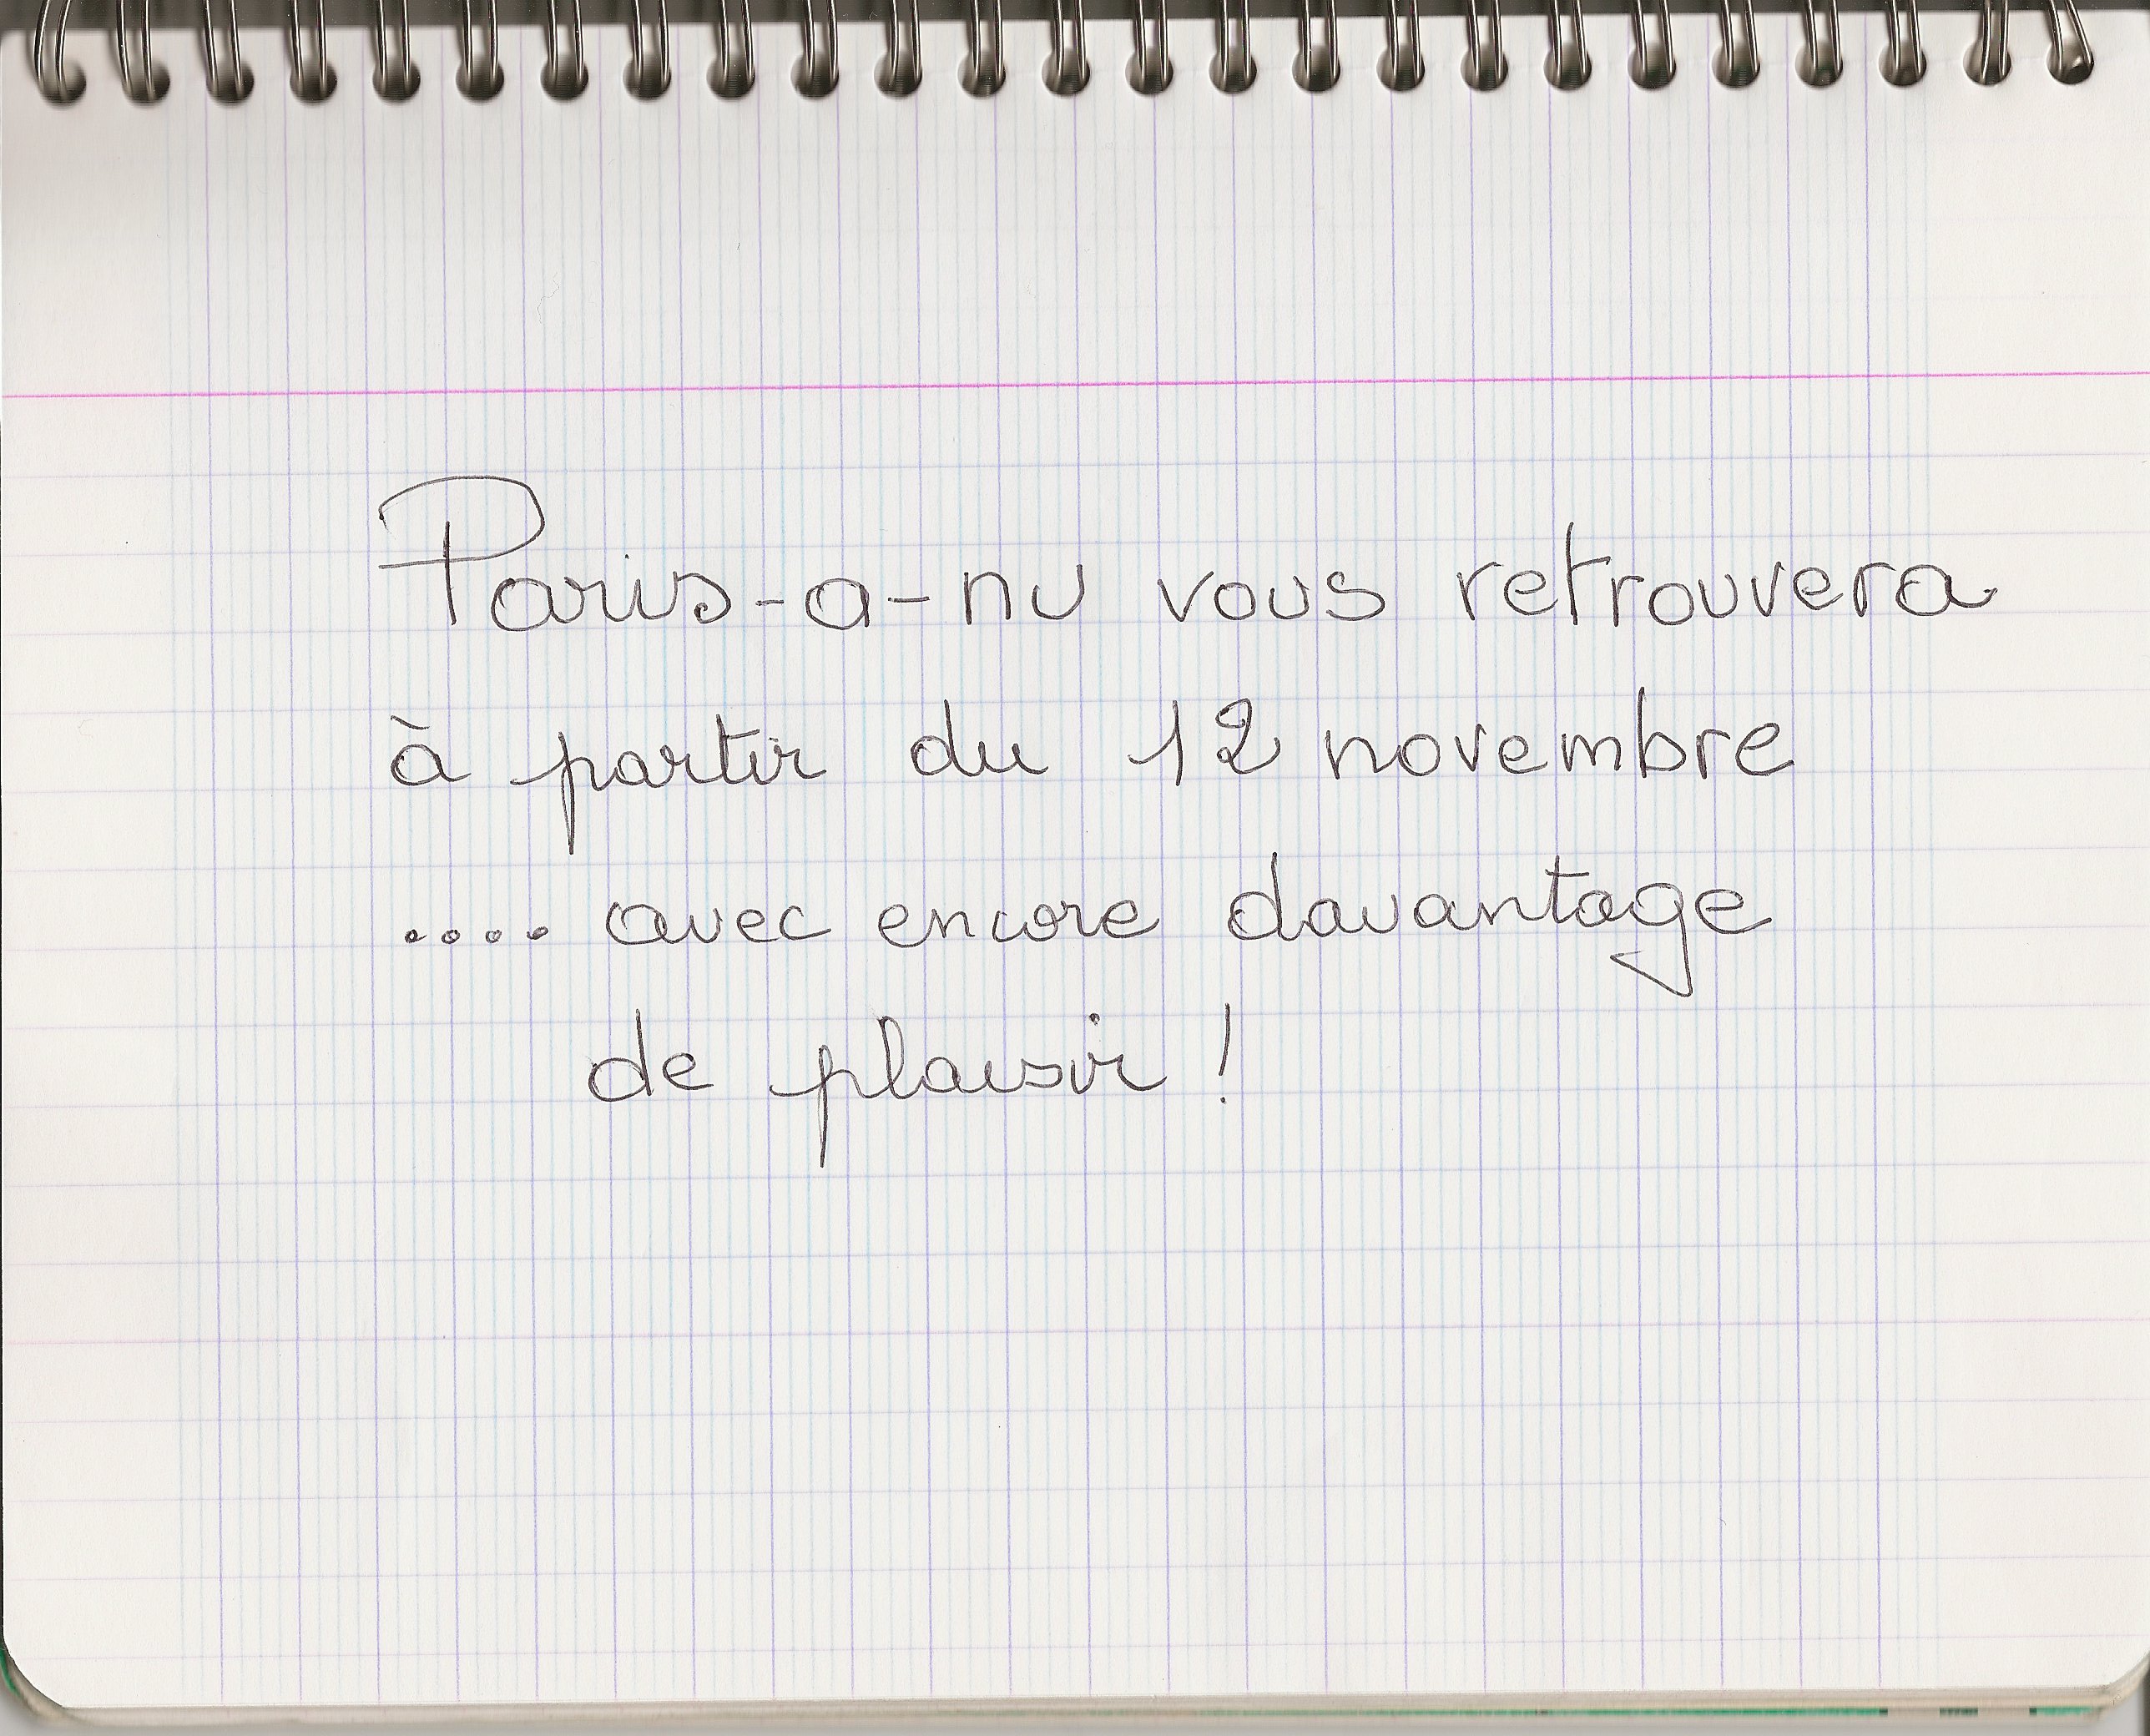 Paris-a-nu vous retrouvera
à partir du 12 novembre
.... avec encore davantage
de plaisir !